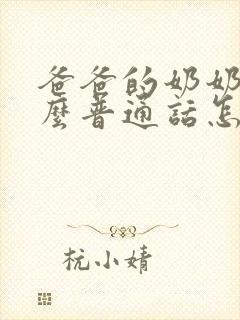 爸爸的奶奶
麼普通話怎
杭小婧